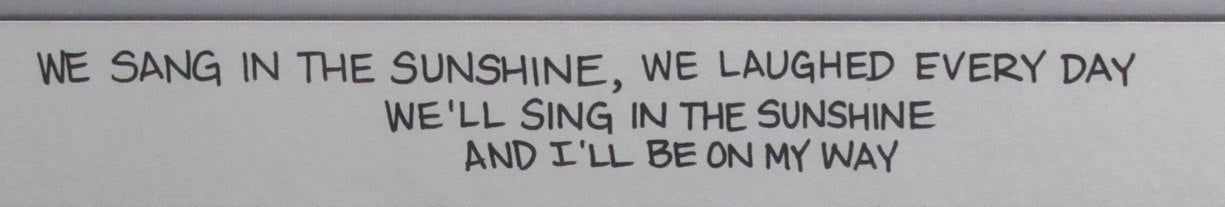 WE SANG IN THE SUNSHINE, WE LAUGHED EVERY DAY
WE'LL SING IN THE SUNSHINE
AND I'LL BE ON MY WAY